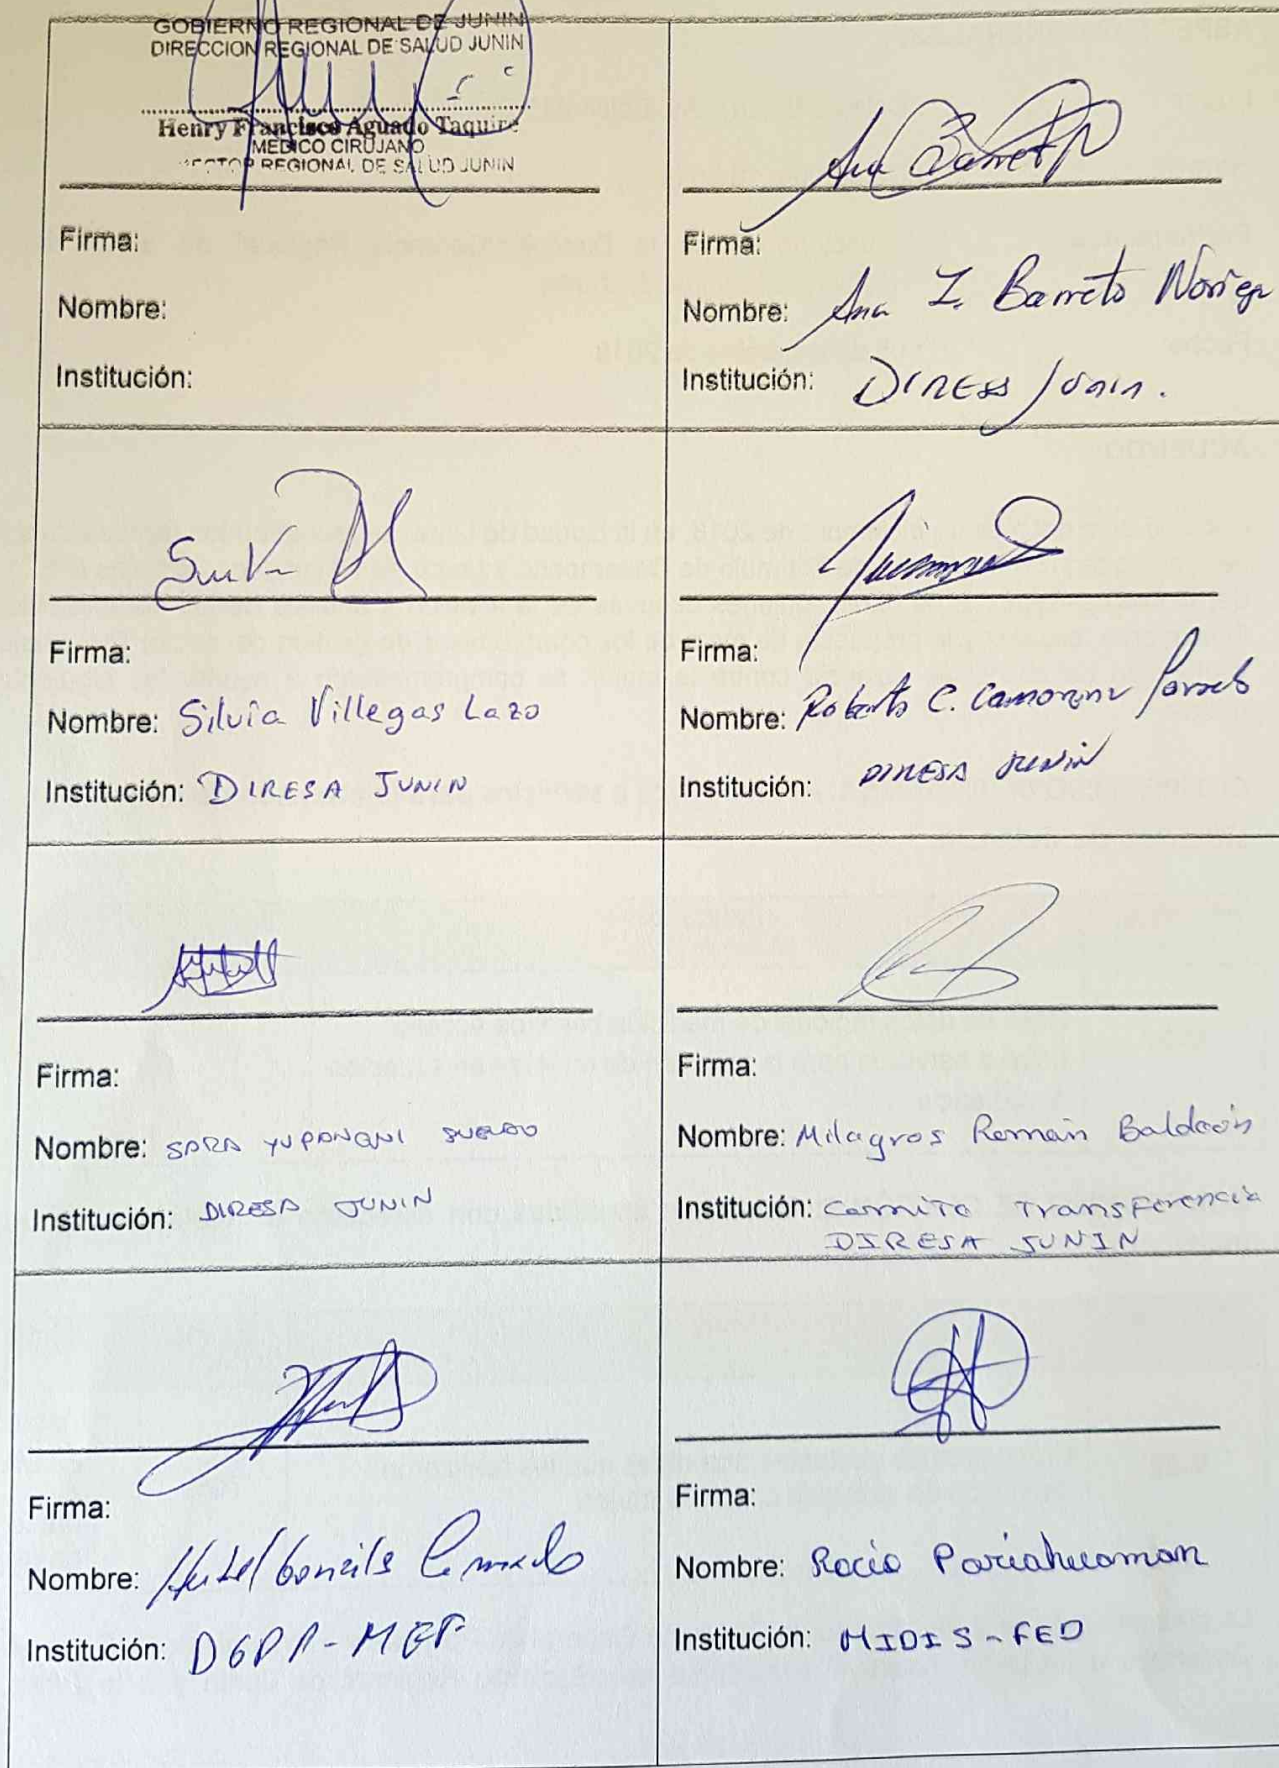 GOBIERNO REGIONAL DE JUNIN
DIRECCION REGIONAL DE SALUD JUNIN
Henry Francisco Aguado Taquire
MEDICO CIRUJANO
REGIONAL DE SALUD JUNIN
Firma:
Nombre:
Institución:
Firma:
Nombre: Ana I. Barreto Noriega
Institución: DIRESA Junin.
Firma:
Nombre: Silvia Villegas Lazo
Institución: DIRESA JUNIN
Firma:
Nombre: Roberto C.
Institución: DIRESA JUNIN
Firma:
Nombre: SARA YUPANQUI
Institución: DIRESA JUNIN
Firma:
Nombre: Milagros Román Baldeón
Institución: Comité Transferencia
DIRESA JUNIN
Firma:
Nombre:
Institución: DGPP-MEF
Firma:
Nombre: Rocío Pariahuaman
Institución: MIDIS-FED